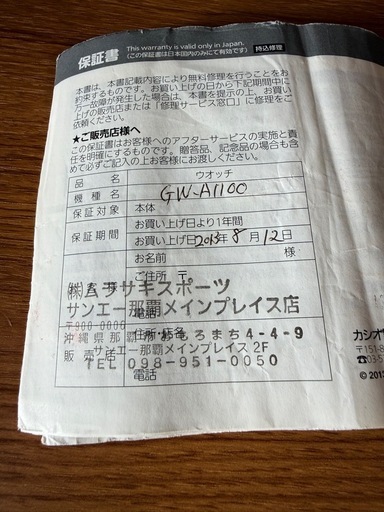 保証書
This warranty is valid only in Japan.
(この保証書は日本国内のみにて有効です)
持込修理
本書は、本書記載内容により無料修理を行うことをお
約束するものです。お買い上げの日から下記期間中に
万一故障が発生した場合は、本書を提示の上、お買い
上げの販売店または「修理サービス窓口」に修理をご
依頼ください。
★ご販売店様へ
この保証書はお客様へのアフターサービスの実施と責
任を明確にするものです。贈答品、記念品の場合も含
めて必ずご記入の上お客様にお渡しください。
品名 ウオッチ
機種名 GW-A1100
保証対象 本体
保証期間 お買い上げ日より1年間
お買い上げ日 2013年 8月 12日
お名前 様
ご住所 〒
㈱ムラサキスポーツ
サンエー那覇メインプレイス店
電話
〒900-0006
沖縄県那覇市おもろまち4-4-9
住所・店名
販売店 サンエー那覇メインプレイス 2F
TEL 098-951-0050
電話
カシオ
〒151-8
© 2012